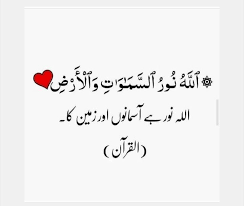 ۞ ٱللَّهُ نُورُ ٱلسَّمَـٰوَٰتِ وَٱلْأَرْضِ
اللہ نور ہے آسمانوں اور زمین کا۔
(القرآن)